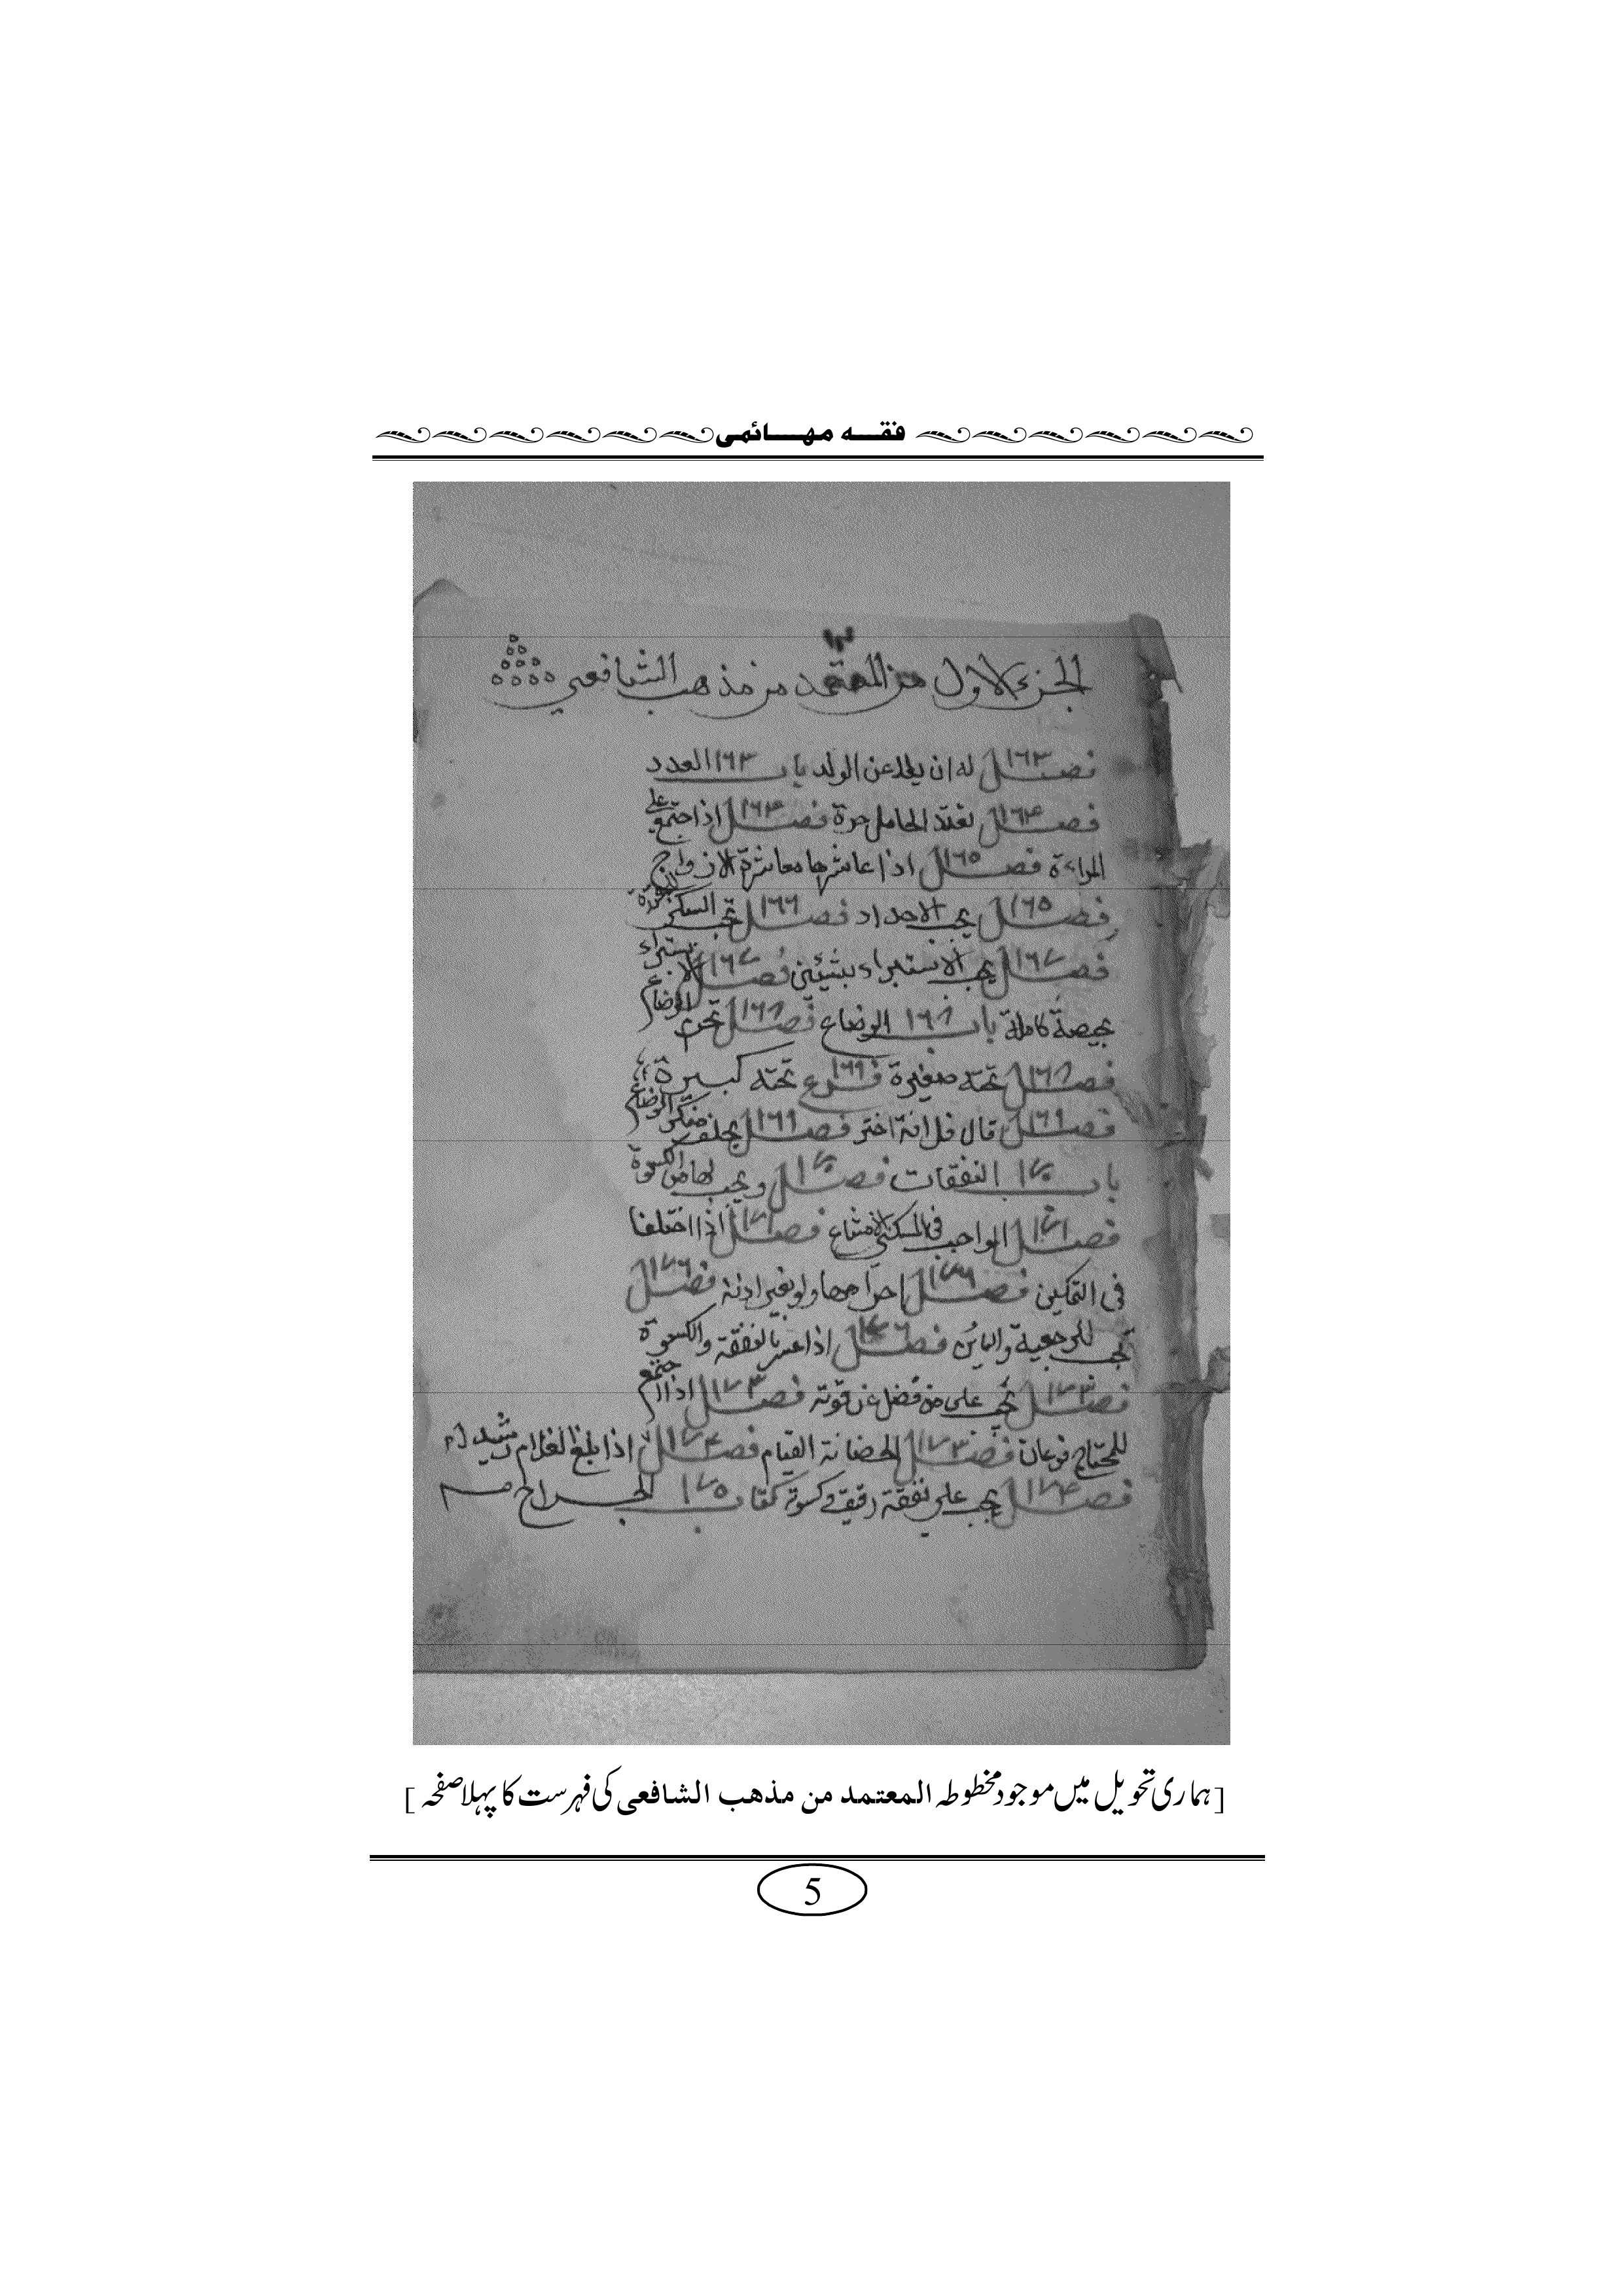 فقـــه مهـــائمی
الجزء الاول من المعتمد من مذهب الشافعي
فصل ١٦٣ له ان يلاعن الولد باب ١٦٣ العدد
فصل ١٦٤ تعتد الحامل حرة فصل ١٦٤ اذا اجتمع على
المراءة فصل ١٦٥ اذا عاشرها معاشرة الازواج
فصل ١٦٥ يجب الاحداد فصل ١٦٦ تجب السكنى
فصل ١٦٧ يجب الاستبراء بشيئين فصل ١٦٧ الاستبراء
بحيضة كاملة باب ١٦٨ الرضاع فصل ١٦٨ تحرم الرضاع
فصل ١٦٨ تحته صغيرة فرع ١٦٩ تحته كبيرة
فصل ١٦٩ قال فلانة اختى فصل ١٦٩ يحلف منكر الرضاع
باب ١٧٠ النفقات فصل ١٧٠ ويجب لها من الكسوة
فصل ١٧١ الواجب فى المسكن الامتاع فصل ١٧١ اذا اختلفا
فى التمكين فصل احرامها ولو بغير اذنه فصل
تجب للرجعية والبائن فصل اذا اعسر بالنفقة والكسوة
فصل ١٧٣ تجب على من فضل عن قوته فصل ١٧٣ اذا اجتمع
للمحتاج فرعان فصل ١٧٣ الحضانة القيام فصل ١٧٤ اذا بلغ الغلام رشيدا
فصل ١٧٤ يجب على نفقة رقيقه وكسوته كتاب ١٧٥ الجراح
[ہماری تحویل میں موجود مخطوطہ المعتمد من مذهب الشافعی کی فہرست کا پہلا صفحہ]
5